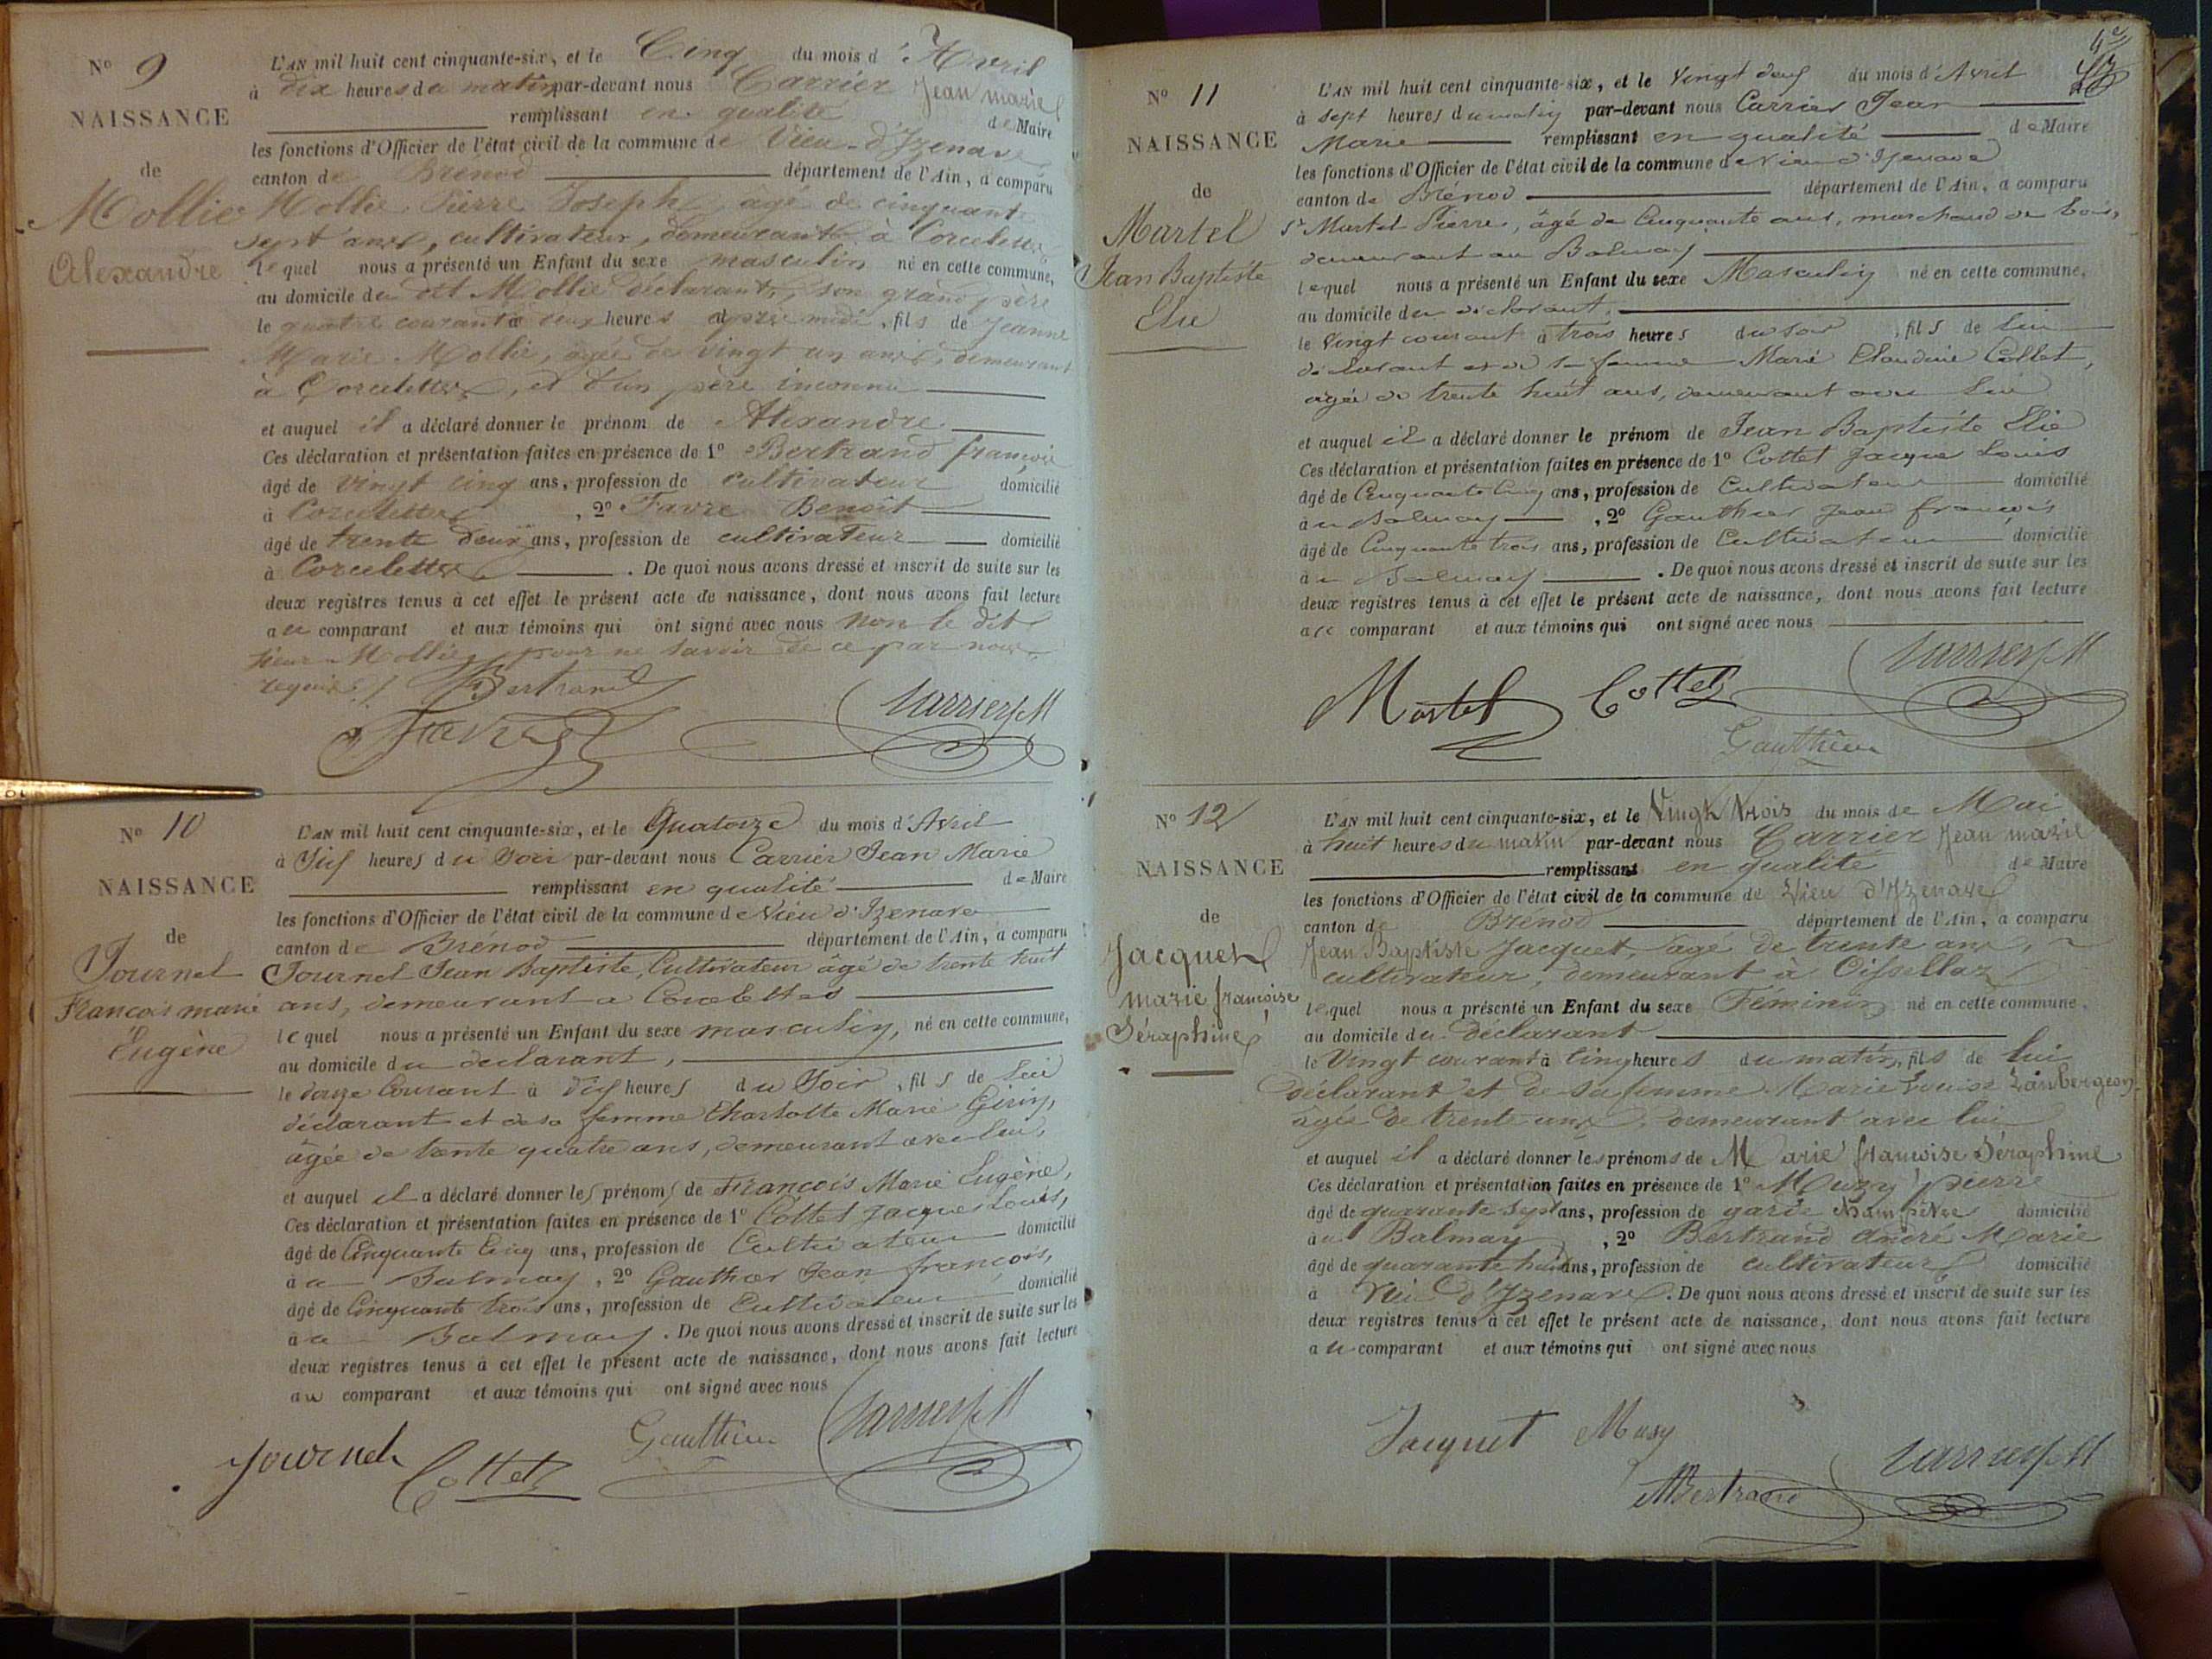 N° 9
NAISSANCE
de
Mollie
Alexandre
L'AN mil huit cent cinquante-six, et le Cinq du mois d'Avril
à dix heures du matin par-devant nous Carrier Jean marie
remplissant en qualité de Maire
les fonctions d'Officier de l'état civil de la commune de Vieu-d'Izenave
canton de Brénod département de l'Ain, a comparu
Mollie Pierre Joseph, agé de cinquante
sept ans, cultivateur, demeurant à Corcelettes
lequel nous a présenté un Enfant du sexe masculin né en cette commune,
au domicile du dit Mollie déclarant, son grand père
le quatre courant à deux heures après midi, fils de Jeanne
Marie Mollie, agée de vingt un ans, demeurant
à Corcelettes, et d'un père inconnu
et auquel il a déclaré donner le prénom de Alexandre
Ces déclaration et présentation faites en présence de 1° Bertrand françois
âgé de vingt cinq ans, profession de cultivateur domicilié
à Corcelettes, 2° Favre Benoît
âgé de trente deux ans, profession de cultivateur domicilié
à Corcelettes. De quoi nous avons dressé et inscrit de suite sur les
deux registres tenus à cet effet le présent acte de naissance, dont nous avons fait lecture
au comparant et aux témoins qui ont signé avec nous non le dit
sieur Mollie pour ne savoir de ce par nous
requis Bertrand
Favre Carrier JM
N° 10
NAISSANCE
de
Journel
François marie
Eugène
L'AN mil huit cent cinquante-six, et le Quatorze du mois d'Avril
à Six heures du Soir par-devant nous Carrier Jean Marie
remplissant en qualité de Maire
les fonctions d'Officier de l'état civil de la commune de Vieu d'Izenave
canton de Brénod département de l'Ain, a comparu
Journel Jean Baptiste, Cultivateur âgé de trente huit
ans, demeurant a Corcelettes
lequel nous a présenté un Enfant du sexe masculin, né en cette commune,
au domicile du declarant,
le douze Courant à Dix heures du Soir, fils de Lui
déclarant et de sa femme Charlotte Marie Girin,
âgée de trente quatre ans, demeurant avec lui,
et auquel il a déclaré donner les prénoms de François Marie Eugène,
Ces déclaration et présentation faites en présence de 1° Cottet Jacques Louis,
âgé de Cinquante Cinq ans, profession de Cultivateur domicilié
à Balmay, 2° Gauthier Jean françois,
âgé de Cinquante trois ans, profession de Cultivateur domicilié
à Balmay. De quoi nous avons dressé et inscrit de suite sur les
deux registres tenus à cet effet le présent acte de naissance, dont nous avons fait lecture
au comparant et aux témoins qui ont signé avec nous
Journel Cottet Gauthier Carrier JM
N° 11
NAISSANCE
de
Martel
Jean Baptiste
Elie
L'AN mil huit cent cinquante-six, et le Vingt deux du mois d'Avril
à Sept heures du matin par-devant nous Carrier Jean
Marie remplissant en qualité de Maire
les fonctions d'Officier de l'état civil de la commune de Vieu d'Izenave
canton de Brénod département de l'Ain, a comparu
Sr Martel Pierre, âgé de Cinquante ans, marchand de bois,
demeurant au Balmay
lequel nous a présenté un Enfant du sexe Masculin né en cette commune,
au domicile du déclarant,
le Vingt courant à trois heures du soir, fils de Lui
déclarant et de sa femme Marie Claudine Collet,
agée de trente huit ans, demeurant avec lui
et auquel il a déclaré donner le prénom de Jean Baptiste Elie
Ces déclaration et présentation faites en présence de 1° Cottet Jacques Louis
âgé de Cinquante Cinq ans, profession de Cultivateur domicilié
au Balmay, 2° Gauthier Jean françois
âgé de Cinquante trois ans, profession de Cultivateur domicilié
au Balmay. De quoi nous avons dressé et inscrit de suite sur les
deux registres tenus à cet effet le présent acte de naissance, dont nous avons fait lecture
au comparant et aux témoins qui ont signé avec nous
Martel Cottet Carrier JM
Gauthier
N° 12
NAISSANCE
de
Jacquet
marie françoise
Séraphine
L'AN mil huit cent cinquante-six, et le Vingt trois du mois de Mai
à huit heures du matin par-devant nous Carrier Jean marie
remplissant en qualité de Maire
les fonctions d'Officier de l'état civil de la commune de Vieu d'Izenave
canton de Brénod département de l'Ain, a comparu
Jean Baptiste Jacquet, agé de trente ans,
cultivateur, demeurant à Oissellaz
lequel nous a présenté un Enfant du sexe Féminin né en cette commune,
au domicile du déclarant
le Vingt courant à Cinq heures du matin, fils de lui
déclarant et de sa femme Marie Louise Lambergeon
agée de trente ans, demeurant avec lui
et auquel il a déclaré donner les prénoms de Marie françoise Séraphine
Ces déclaration et présentation faites en présence de 1° Muzy pierre
âgé de quarante sept ans, profession de garde champêtre domicilié
au Balmay, 2° Bertrand André Marie
âgé de quarante huit ans, profession de cultivateur domicilié
à Vieu d'Izenave. De quoi nous avons dressé et inscrit de suite sur les
deux registres tenus à cet effet le présent acte de naissance, dont nous avons fait lecture
au comparant et aux témoins qui ont signé avec nous
Jacquet Musy
ABertrand Carrier JM